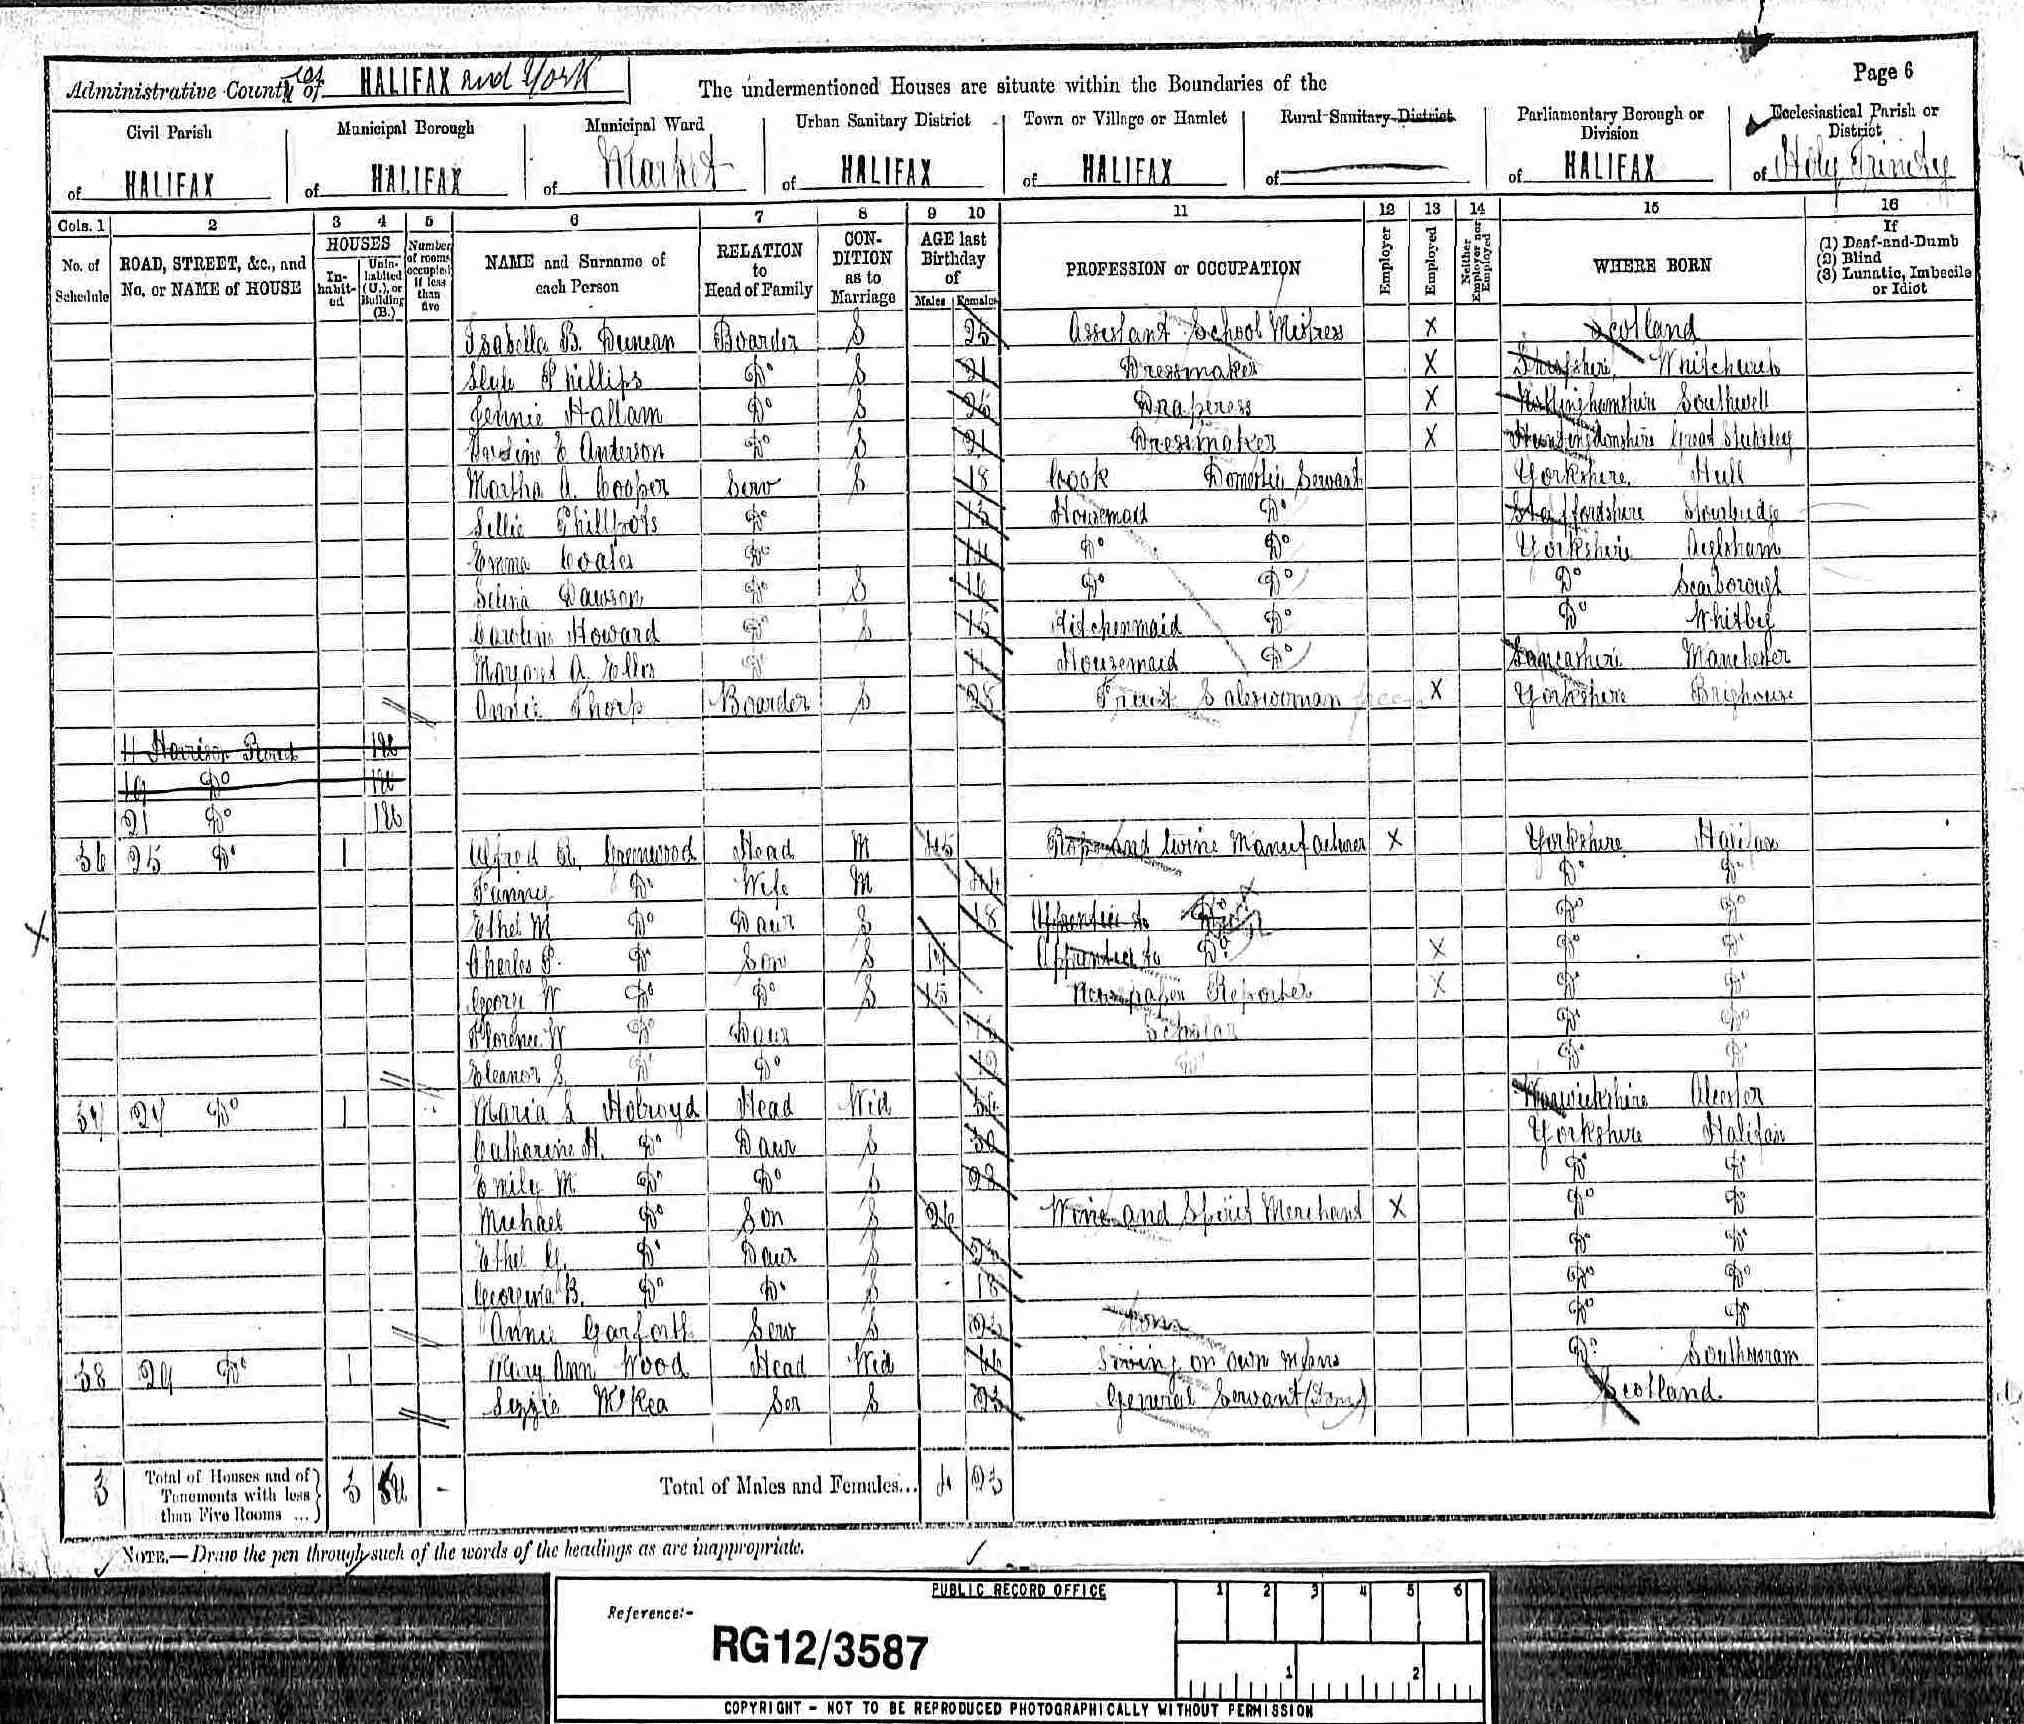 Page 6
Administrative County of HALIFAX and York
The undermentioned Houses are situate within the Boundaries of the
Civil Parish of HALIFAX
Municipal Borough of HALIFAX
Municipal Ward of Market
Urban Sanitary District of HALIFAX
Town or Village or Hamlet of HALIFAX
Rural Sanitary District of
Parliamentary Borough or Division of HALIFAX
Ecclesiastical Parish or District of Holy Trinity
Cols. 1 2 3 4 5 6 7 8 9 10 11 12 13 14 15 16
No. of Schedule
ROAD, STREET, &c., and No. or NAME of HOUSE
HOUSES
In-habit-ed
Unin-habited (U.), or Building (B.)
Number of rooms occupied if less than five
NAME and Surname of each Person
RELATION to Head of Family
CON-DITION as to Marriage
AGE last Birthday of
Males Females
PROFESSION or OCCUPATION
Employer
Employed
Neither Employer nor Employed
WHERE BORN
If (1) Deaf-and-Dumb (2) Blind (3) Lunatic, Imbecile or Idiot
Isabella B. Duncan Boarder S 25 Assistant School Mistress X Scotland
Phillips Do S 21 Dressmaker X Shropshire, Whitchurch
Jennie Hallam Do S 26 Draperess X Nottinghamshire Southwell
E Anderson Do S 21 Dressmaker X Huntingdonshire Great Stukeley
Martha A. Cooper Serv S 18 Cook Domestic Servant Yorkshire, Hull
Do 15 Housemaid Do Staffordshire Stourbridge
Emma Coates Do Do Do Yorkshire
Selina Dawson Do S 16 Do Do Do Scarborough
Caroline Howard Do S 15 Kitchenmaid Do Do Whitby
Margaret A. Do Housemaid Do Lancashire Manchester
Annie Thorp Boarder S 28 Saleswoman X Yorkshire Brighouse
Harrison Road 1U
19 Do 1U
21 Do 1U
36 25 Do 1 Alfred R. Greenwood Head M 45 Rope and twine Manufacturer X Yorkshire Halifax
Fanny Do Wife M 44 Do Do
Ethel M Do Daur S 18 Apprentice to Do Do Do
Charles P. Do Son S 17 Apprentice to Do X Do Do
George W Do Do S 15 Newspaper Reporter X Do Do
Florence W Do Daur Scholar Do Do
Eleanor S. Do Do 12 Do Do Do
37 27 Do 1 Maria S Holroyd Head Wid 54 Warwickshire Alcester
Catharine H. Do Daur S 30 Yorkshire Halifax
Emily M. Do Do S 28 Do Do
Michael Do Son S 26 Wine and Spirit Merchant X Do Do
Ethel G. Do Daur S Do Do
Georgina B. Do Do S 18 Do Do
Annie Garforth Serv S 23 Do Do
38 29 Do 1 Mary Ann Wood Head Wid Living on own means Do Southowram
Lizzie McKea Ser S 23 General Servant (Dom) Scotland
3 Total of Houses and of Tenements with less than Five Rooms ... 3 - Total of Males and Females... 4 23
NOTE.—Draw the pen through such of the words of the headings as are inappropriate.
PUBLIC RECORD OFFICE
1 2 3 4 5 6
Reference:-
RG12/3587
1 2
COPYRIGHT - NOT TO BE REPRODUCED PHOTOGRAPHICALLY WITHOUT PERMISSION